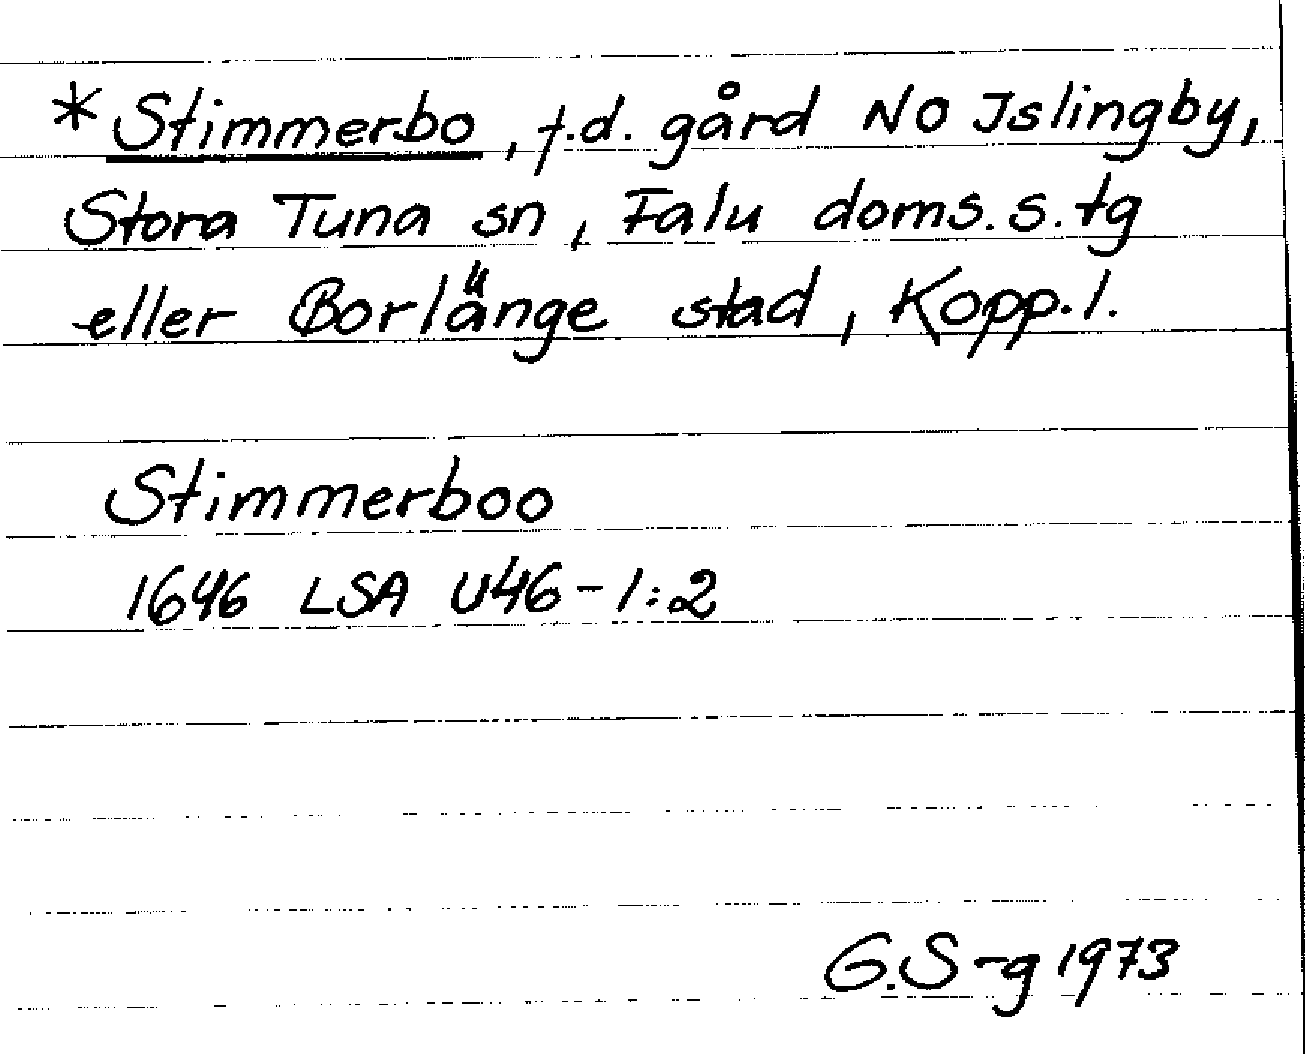 *Stimmerbo, f.d. gård NO Islingby,
Stora Tuna sn, Falu doms.s.tg
eller Borlänge stad, Kopp.l.
Stimmerboo
1646 LSA U46-1:2
G.S-g 1973